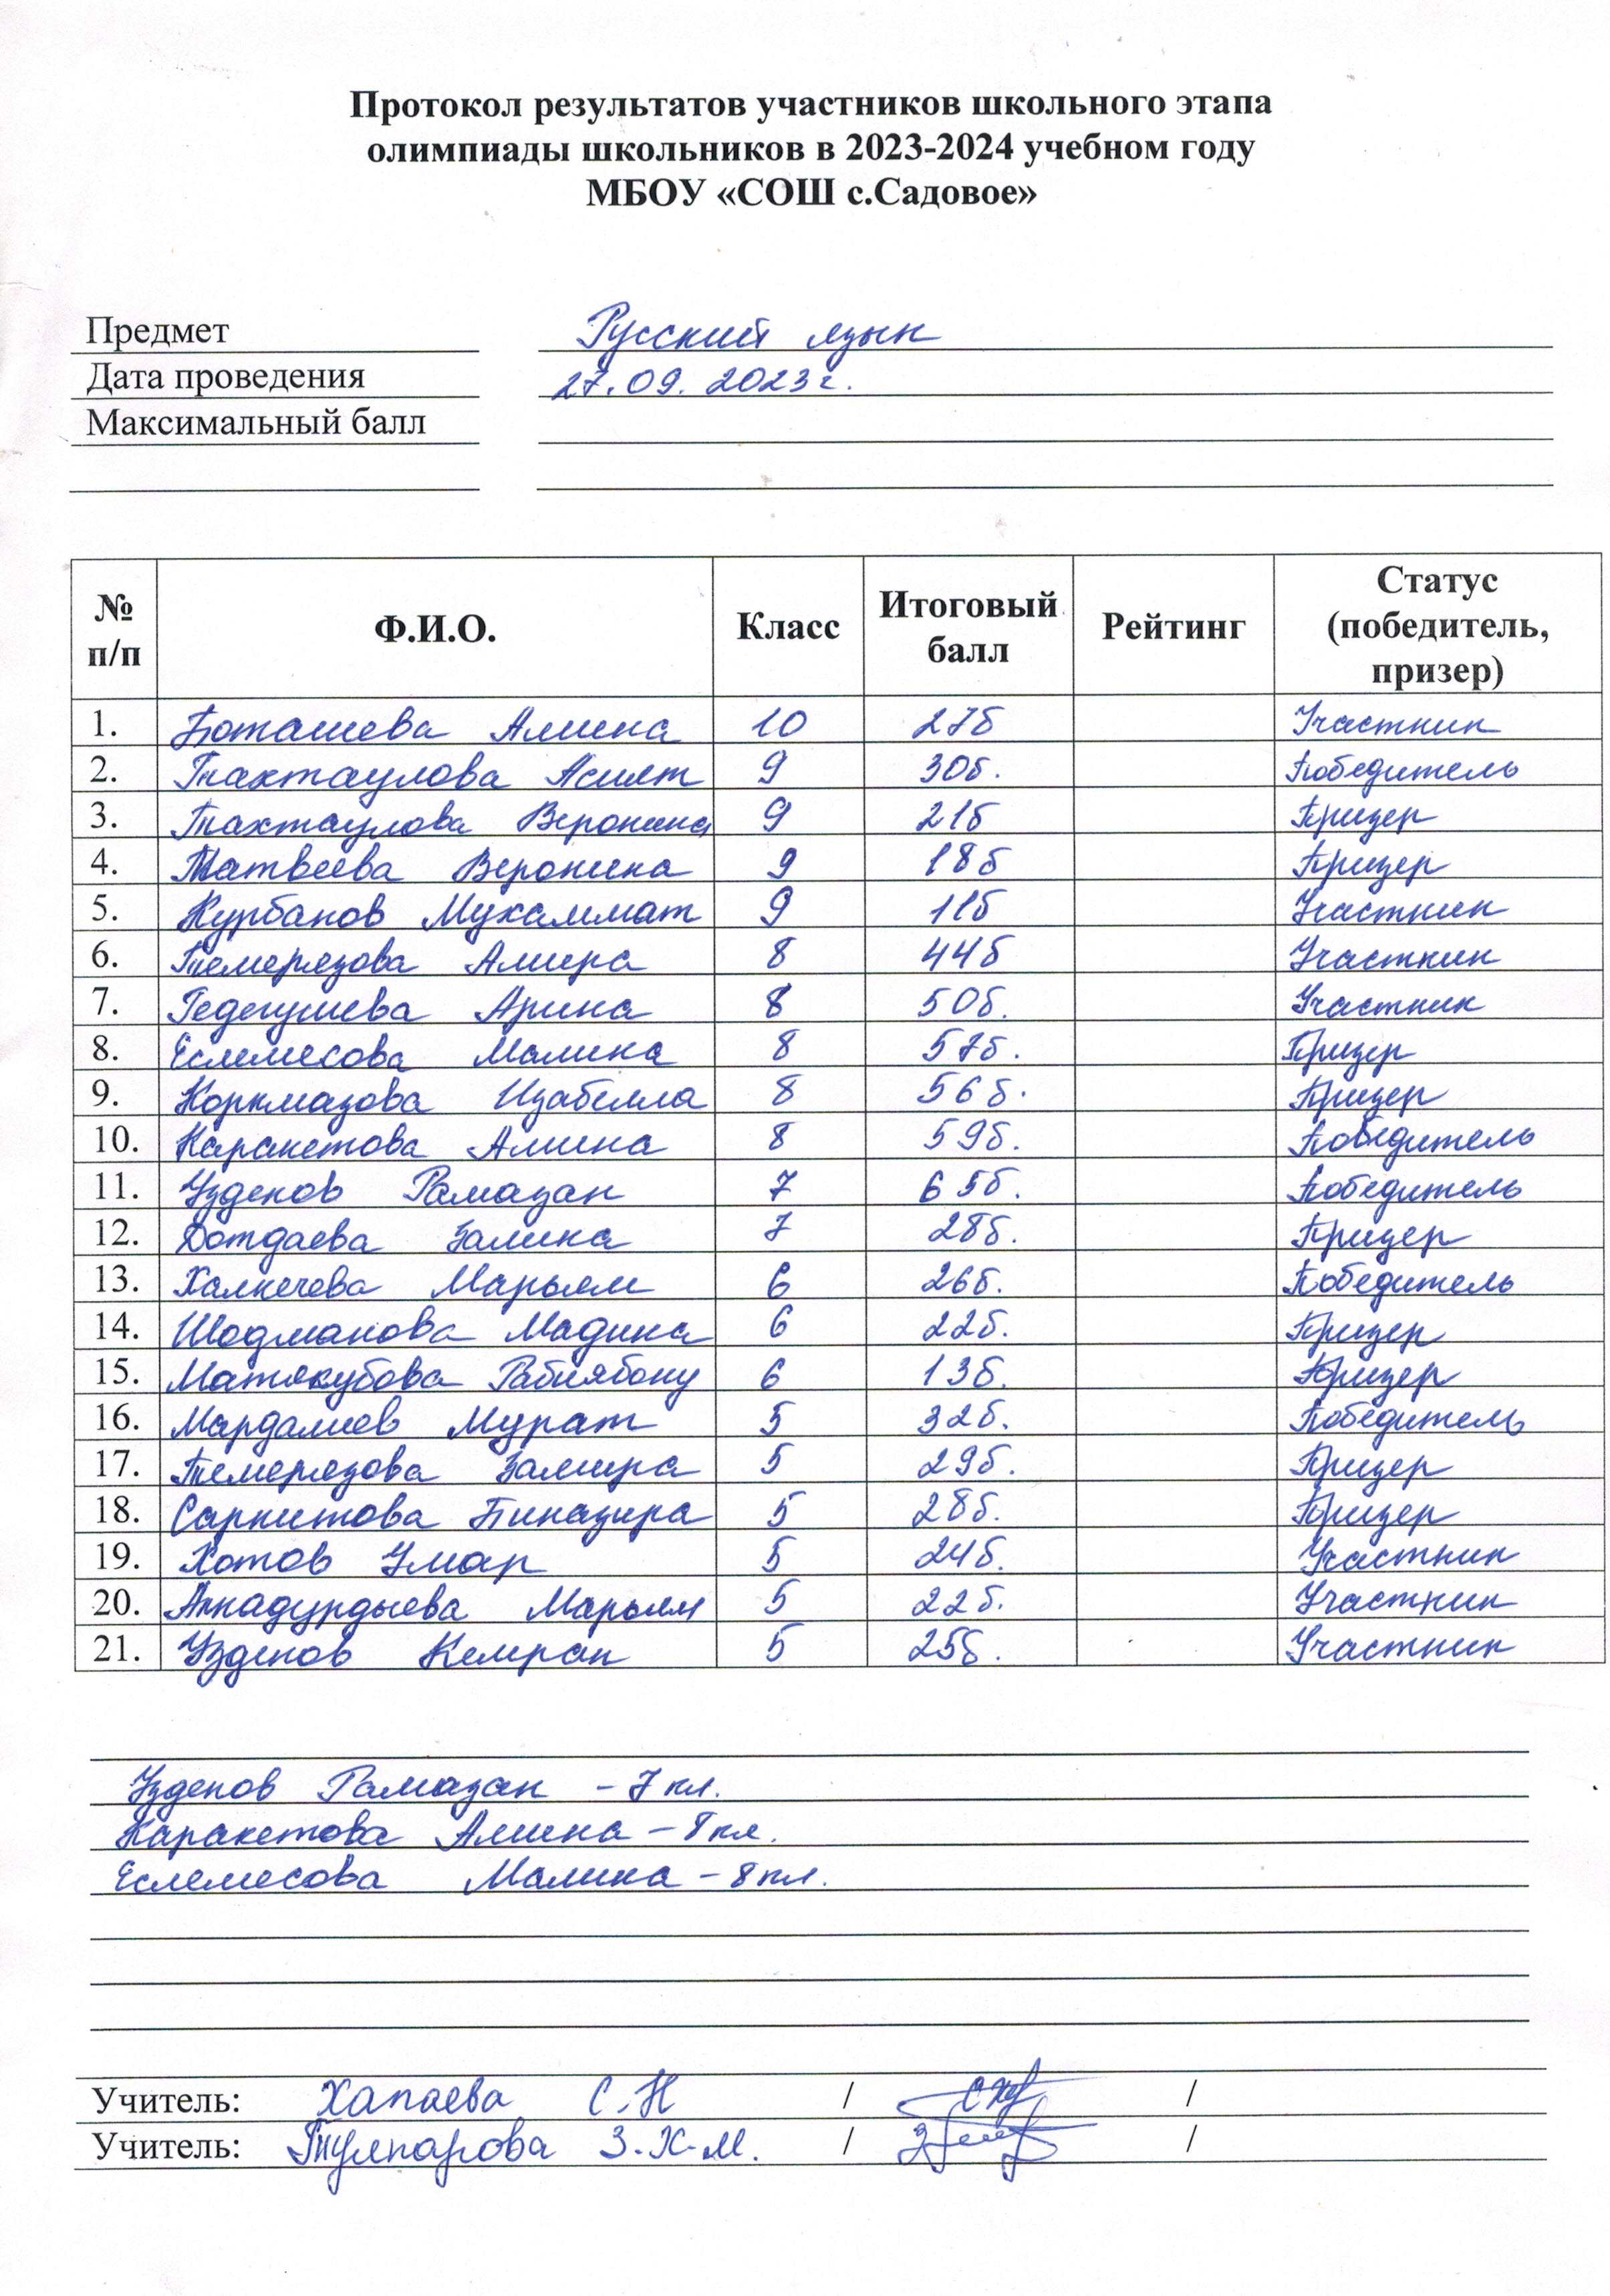 Протокол результатов участников школьного этапа
олимпиады школьников в 2023-2024 учебном году
МБОУ «СОШ с.Садовое»
Предмет Русский язык
Дата проведения 27.09.2023г.
Максимальный балл
№ п/п Ф.И.О. Класс Итоговый балл Рейтинг Статус (победитель, призер)
1. Боташева Амина 10 27б Участник
2. Тахтаулова Асият 9 30б. Победитель
3. Тахтаулова Вероника 9 21б Призер
4. Матвеева Вероника 9 18б Призер
5. Курбанов Мухаммат 9 11б Участник
6. Темерезова Амира 8 44б Участник
7. Гедегушева Арина 8 50б. Участник
8. Еслемесова Малика 8 57б. Призер
9. Коркмазова Изабелла 8 56б. Призер
10. Каракетова Амина 8 59б. Победитель
11. Узденов Рамазан 7 65б. Победитель
12. Дотдаева Залина 7 28б. Призер
13. Халкечева Марьям 6 26б. Победитель
14. Шодманова Мадина 6 22б. Призер
15. Матякубова Рабиябону 6 13б. Призер
16. Мардалиев Мурат 5 32б. Победитель
17. Темерезова Замира 5 29б. Призер
18. Саркитова Биназира 5 28б. Призер
19. Хотов Умар 5 24б. Участник
20. Аннадурдыева Марьям 5 22б. Участник
21. Узденов Кемран 5 25б. Участник
Узденов Рамазан - 7 кл.
Каракетова Амина - 8 кл.
Еслемесова Малика - 8 кл.
Учитель: Хапаева С.Н / /
Учитель: Тулпарова З.Х-М. / /